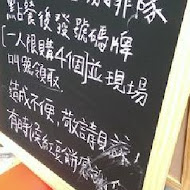 排隊
點餐後發號碼牌
一人限購4個並現場
叫號領取
造成不便,敬請見諒!
有時候紅豆餅感